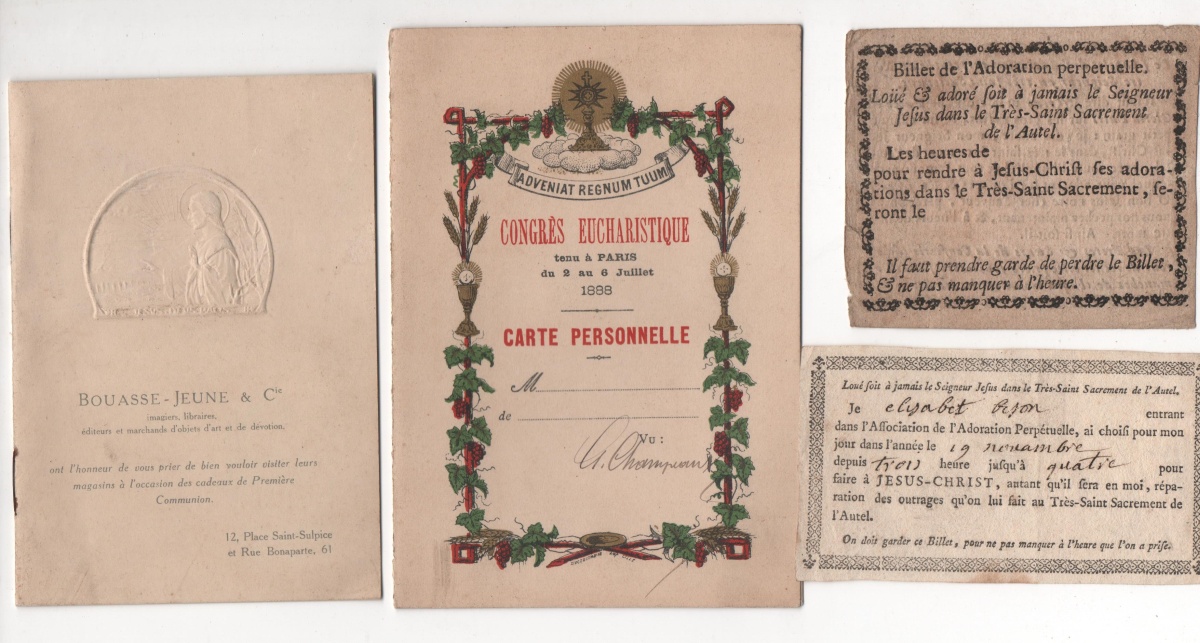 BOUASSE-JEUNE & Cie
imagiers, libraires,
éditeurs et marchands d'objets d'art et de dévotion,
ont l'honneur de vous prier de bien vouloir visiter leurs
magasins à l'occasion des cadeaux de Première
Communion.
12, Place Saint-Sulpice
et Rue Bonaparte, 61
ADVENIAT REGNUM TUUM
CONGRÈS EUCHARISTIQUE
tenu à PARIS
du 2 au 6 Juillet
1888
CARTE PERSONNELLE
M
de
Vu :
Billet de l'Adoration perpetuelle.
Loüé & adoré ſoit à jamais le Seigneur
Jeſus dans le Très-Saint Sacrement
de l'Autel.
Les heures de
pour rendre à Jeſus-Chriſt ſes adora-
tions dans le Très-Saint Sacrement, ſe-
ront le
Il faut prendre garde de perdre le Billet,
& ne pas manquer à l'heure.
Loué ſoit à jamais le Seigneur Jeſus dans le Très-Saint Sacrement de l'Autel.
Je elisabet entrant
dans l'Aſſociation de l'Adoration Perpétuelle, ai choiſi pour mon
jour dans l'année le 19 novambre
depuis trois heure juſqu'à quatre pour
faire à JESUS-CHRIST, autant qu'il ſera en moi, répa-
ration des outrages qu'on lui fait au Très-Saint Sacrement de
l'Autel.
On doit garder ce Billet, pour ne pas manquer à l'heure que l'on a priſe.